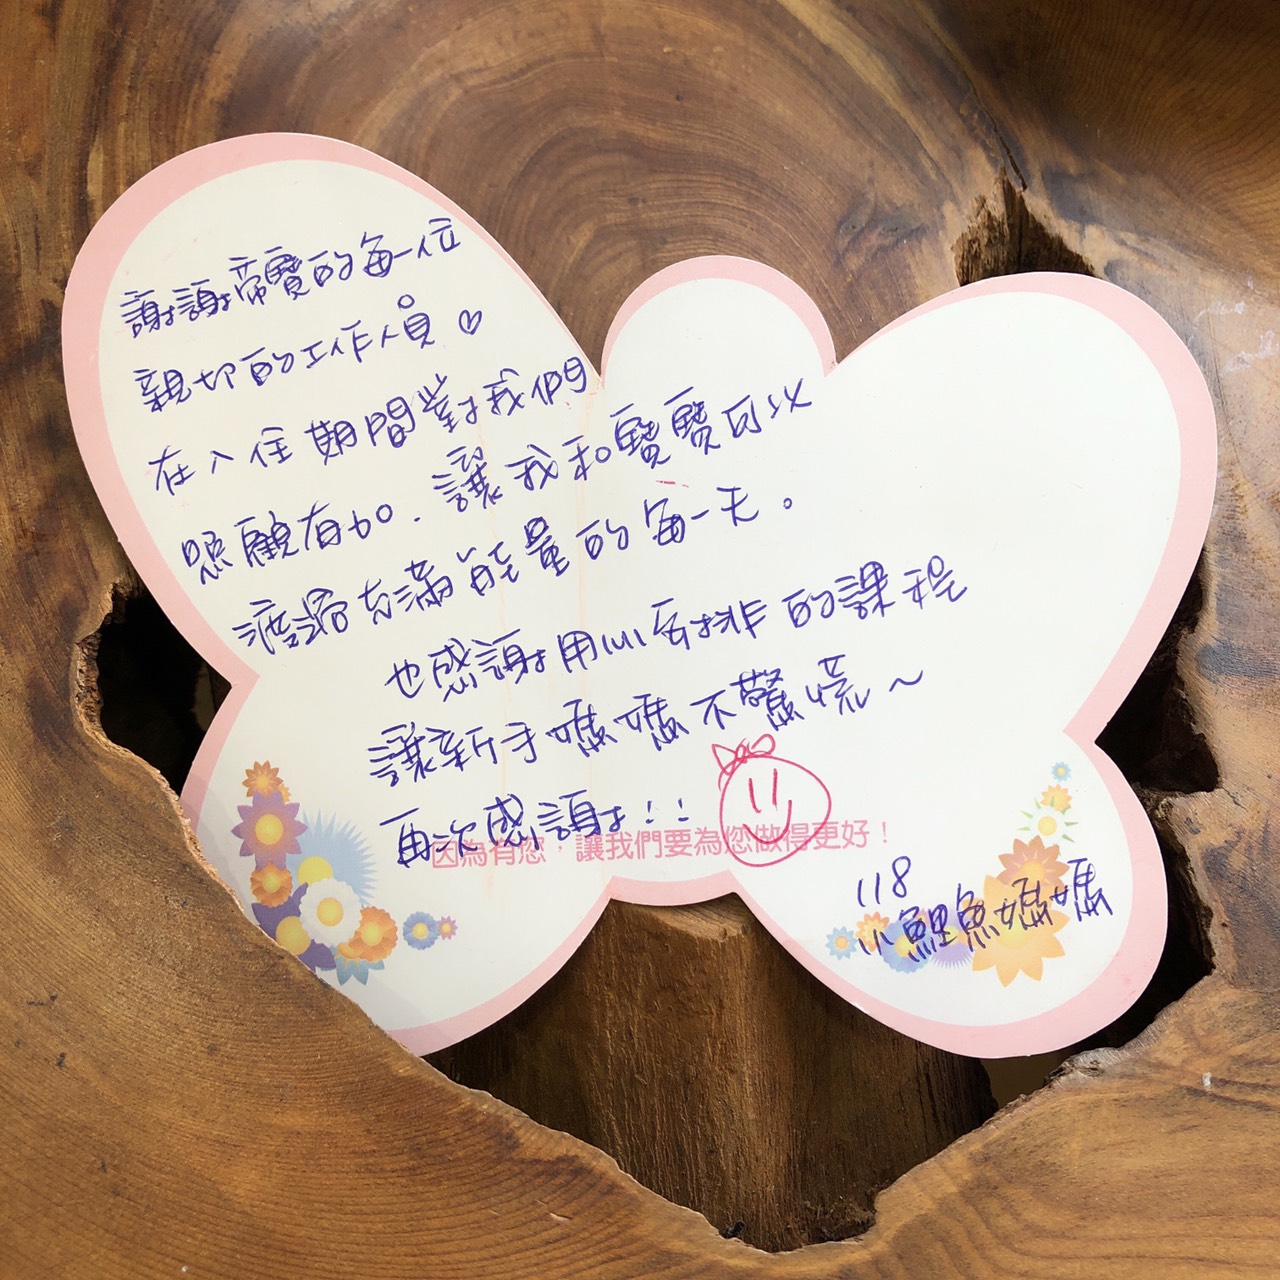 謝謝帝寶的每一位
親切的工作人員♡
在入住期間對我們
照顧有加.讓我和寶寶可以
渡過充滿能量的每一天。
也感謝用心安排的課程
讓新手媽媽不驚慌~
再次感謝!!
因為有您,讓我們要為您做得更好!
118
小鯉魚媽媽